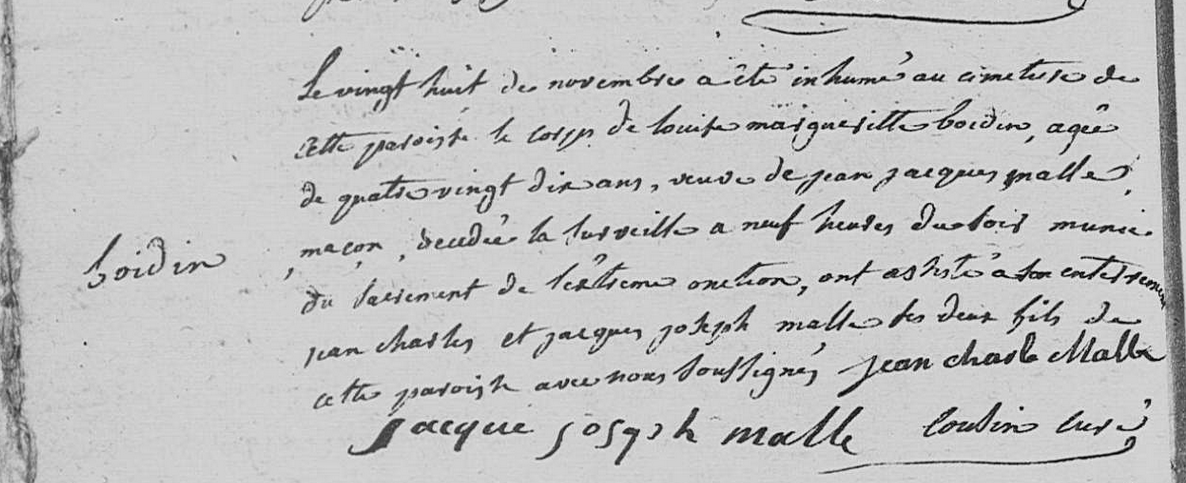 Le vingt huit de novembre a été inhumé au cimetiere de
cette paroisse le corps de louise margueritte boidin, agée
de quatre vingt dix ans, veuve de jean jacques malle,
boidin
maçon, decedée la surveille a neuf heures du soir munie
du sacrement de l'extreme onction, ont assisté a son enterrement
jean charles et jacques joseph malle ses deux fils de
cette paroisse avec nous soussignés jean charle Malle
jacque joseph malle cousin curé